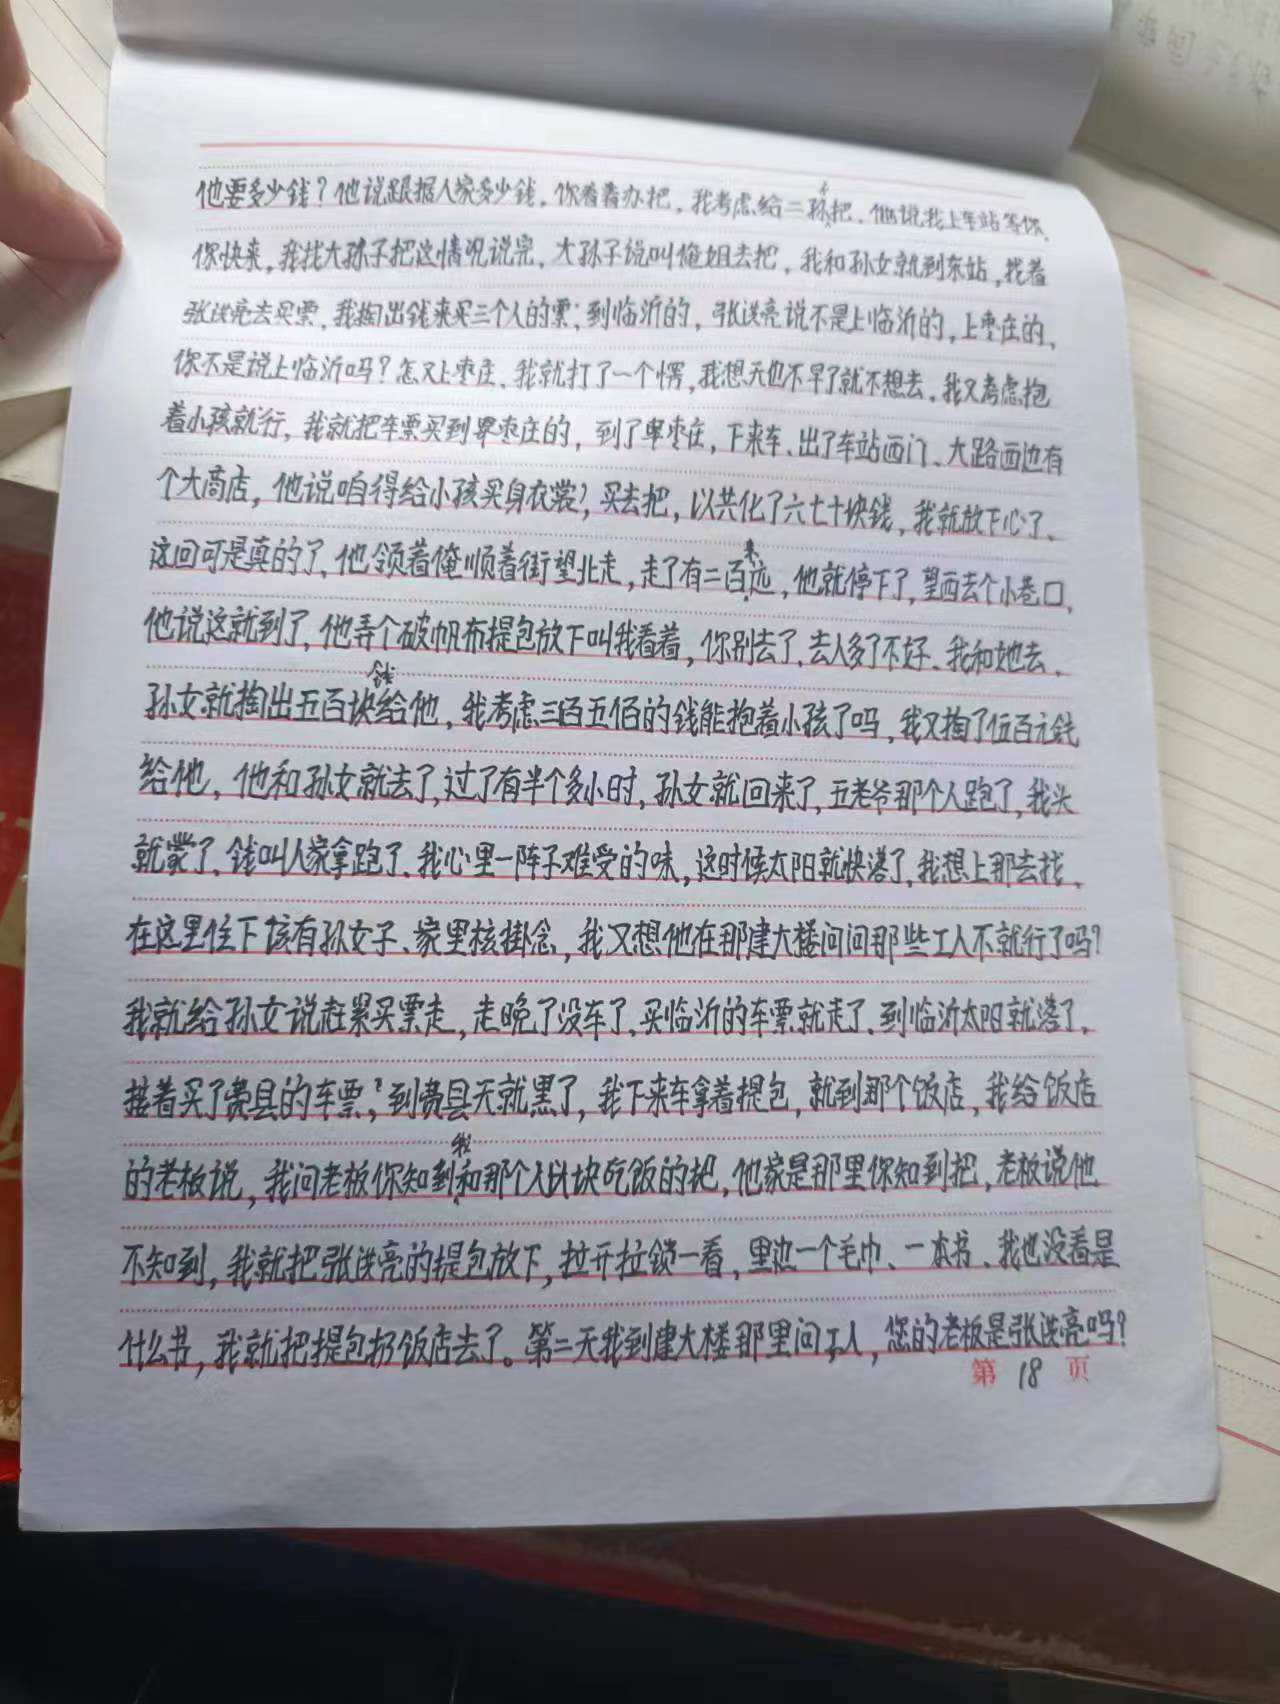 他要多少钱？他说跟据人家多少钱，你看着办把，我考虑给二孙子把，他说我上车站等你，
你快来，我找大孙子把这情况说完，大孙子说叫俺姐去把，我和孙女就到东站，找着
张洪亮去买票，我掏出钱来买三个人的票；到临沂的，张洪亮说不是上临沂的，上枣庄的，
你不是说上临沂吗？怎又上枣庄、我就打了一个愣，我想天也不早了就不想去，我又考虑抱
着小孩就行，我就把车票买到枣庄的，到了枣庄，下来车、出了车站西门、大路西边有
个大商店，他说咱得给小孩买身衣裳？买去把，以共化了六七十块钱，我就放下心了、
这回可是真的了，他领着俺顺着街望北走，走了有二百来远，他就停下了，望西去个小巷口，
他说这就到了，他弄个破帆布提包放下叫我看着，你别去了、去人多了不好、我和她去、
孙女就掏出五百块钱给他，我考虑三百五佰的钱能抱着小孩了吗，我又掏了伍百元钱
给他，他和孙女就去了，过了有半个多小时，孙女就回来了，五老爷那个人跑了，我头
就蒙了、钱叫人家拿跑了、我心里一阵子难受的味，这时候太阳就快落了，我想上那去找、
在这里住下该有孙女子、家里核掛念，我又想他在那建大楼问问那些工人不就行了吗？
我就给孙女说赶累买票走，走晚了没车了、买临沂的车票就走了、到临沂太阳就落了，
接着买了费县的车票；到费县天就黑了，我下来车拿着提包，就到那个饭店，我给饭店
的老板说，我问老板你知到我和那个人以块吃饭的把，他家是那里你知到把，老板说他
不知到，我就把张洪亮的提包放下，拉开拉锁一看，里边一个毛巾、一本书、我也没看是
什么书，我就把提包扔饭店去了。第二天我到建大楼那里问工人，您的老板是张洪亮吗？
第 18 页